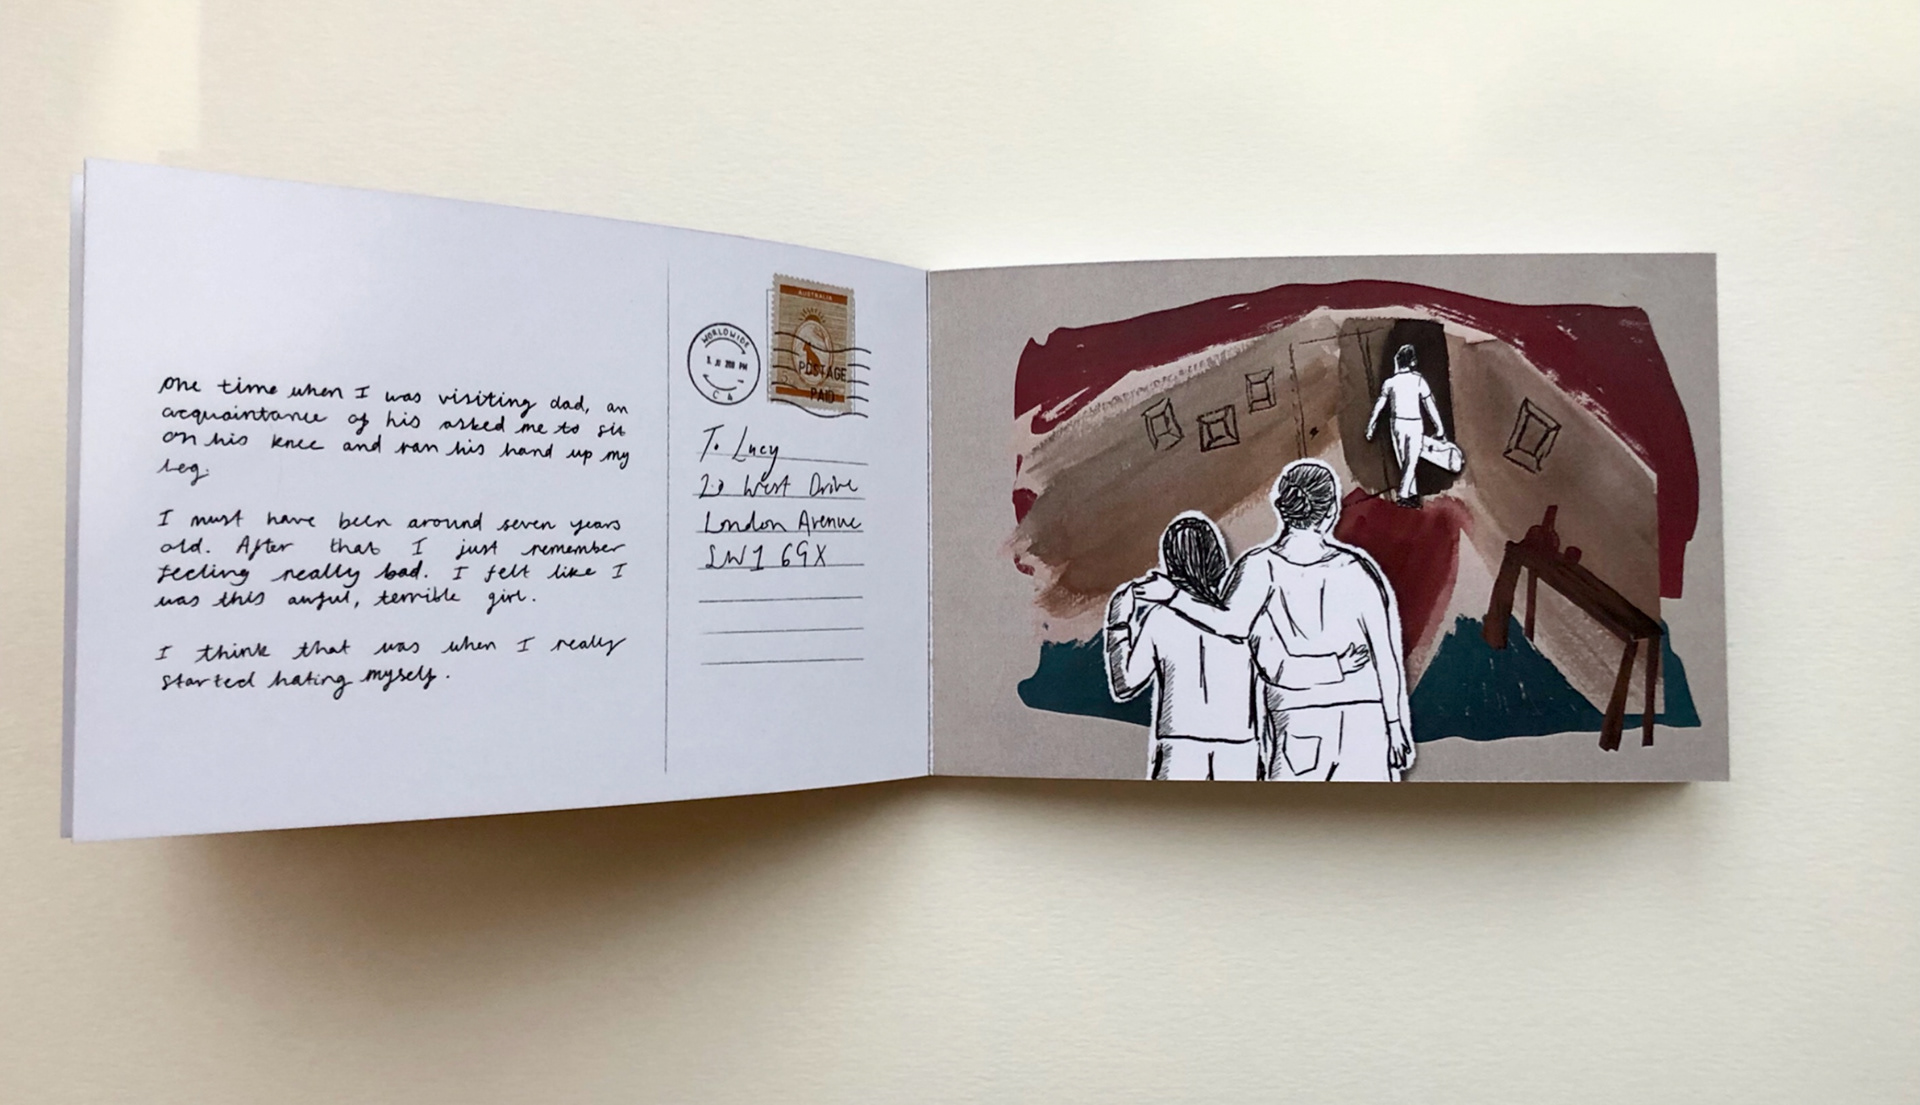 One time when I was visiting dad, an
acquaintance of his asked me to sit
on his knee and ran his hand up my
leg.
I must have been around seven years
old. After that I just remember
feeling really bad. I felt like I
was this awful, terrible girl.
I think that was when I really
started hating myself.
AUSTRALIA
WORLDWIDE
PM
CA
POSTAGE
PAID
To Lucy
23 West Drive
London Avenue
SW1 6GX